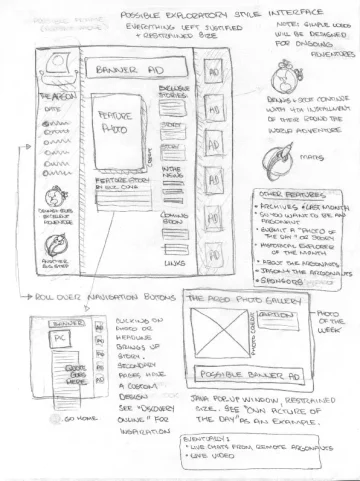 POSSIBLE EXPLORATORY STYLE INTERFACE
EVERYTHING LEFT JUSTIFIED
+ RESTRAINED SIZE
NOTE: SIMPLE ICONS
WILL BE DESIGNED
FOR ONGOING
ADVENTURES
BANNER AD
AD
AD
AD
AD
AD
THE ARGON
DATE
FEATURE
PHOTO
CREDIT
FEATURE STORY
EXCLUSIVE
STORIES:
STORY
STORY
IN THE
NEWS
COMING
SOON
LINKS
ADVENTURE
ANOTHER
BIG STEP
CONTINUE
WITH 4TH INSTALLMENT
OF THEIR ROUND THE
WORLD ADVENTURE
MATHS
OTHER FEATURES
• ARCHIVES + LAST MONTH
• SO YOU WANT TO BE AN
ARGONAUT
• SUBMIT A "PHOTO OF
THE DAY" OR STORY
• HISTORICAL EXPLORER
OF THE MONTH
• ABOUT THE ARGONAUTS
• JASON + THE ARGONAUTS
• SPONSORS
ROLL OVER NAVIGATION BUTTONS
BANNER
PIC
AD
AD
AD
AD
QUOTE
GOES
HERE
GO HOME
CLICKING ON
PHOTO OR
HEADLINE
BRINGS UP
STORY.
SECONDARY
PAGES HAVE
A CUSTOM
DESIGN
SEE "DISCOVERY
ONLINE" FOR
INSPIRATION
THE ARGO PHOTO GALLERY
PHOTO CREDIT
CAPTION
POSSIBLE BANNER AD
PHOTO
OF THE
WEEK
JAVA POP UP WINDOW, RESTRAINED
SIZE. SEE "CNN PICTURE OF
THE DAY" AS AN EXAMPLE.
EVENTUALLY!
• LIVE CHATS FROM REMOTE ARGONAUTS
• LIVE VIDEO